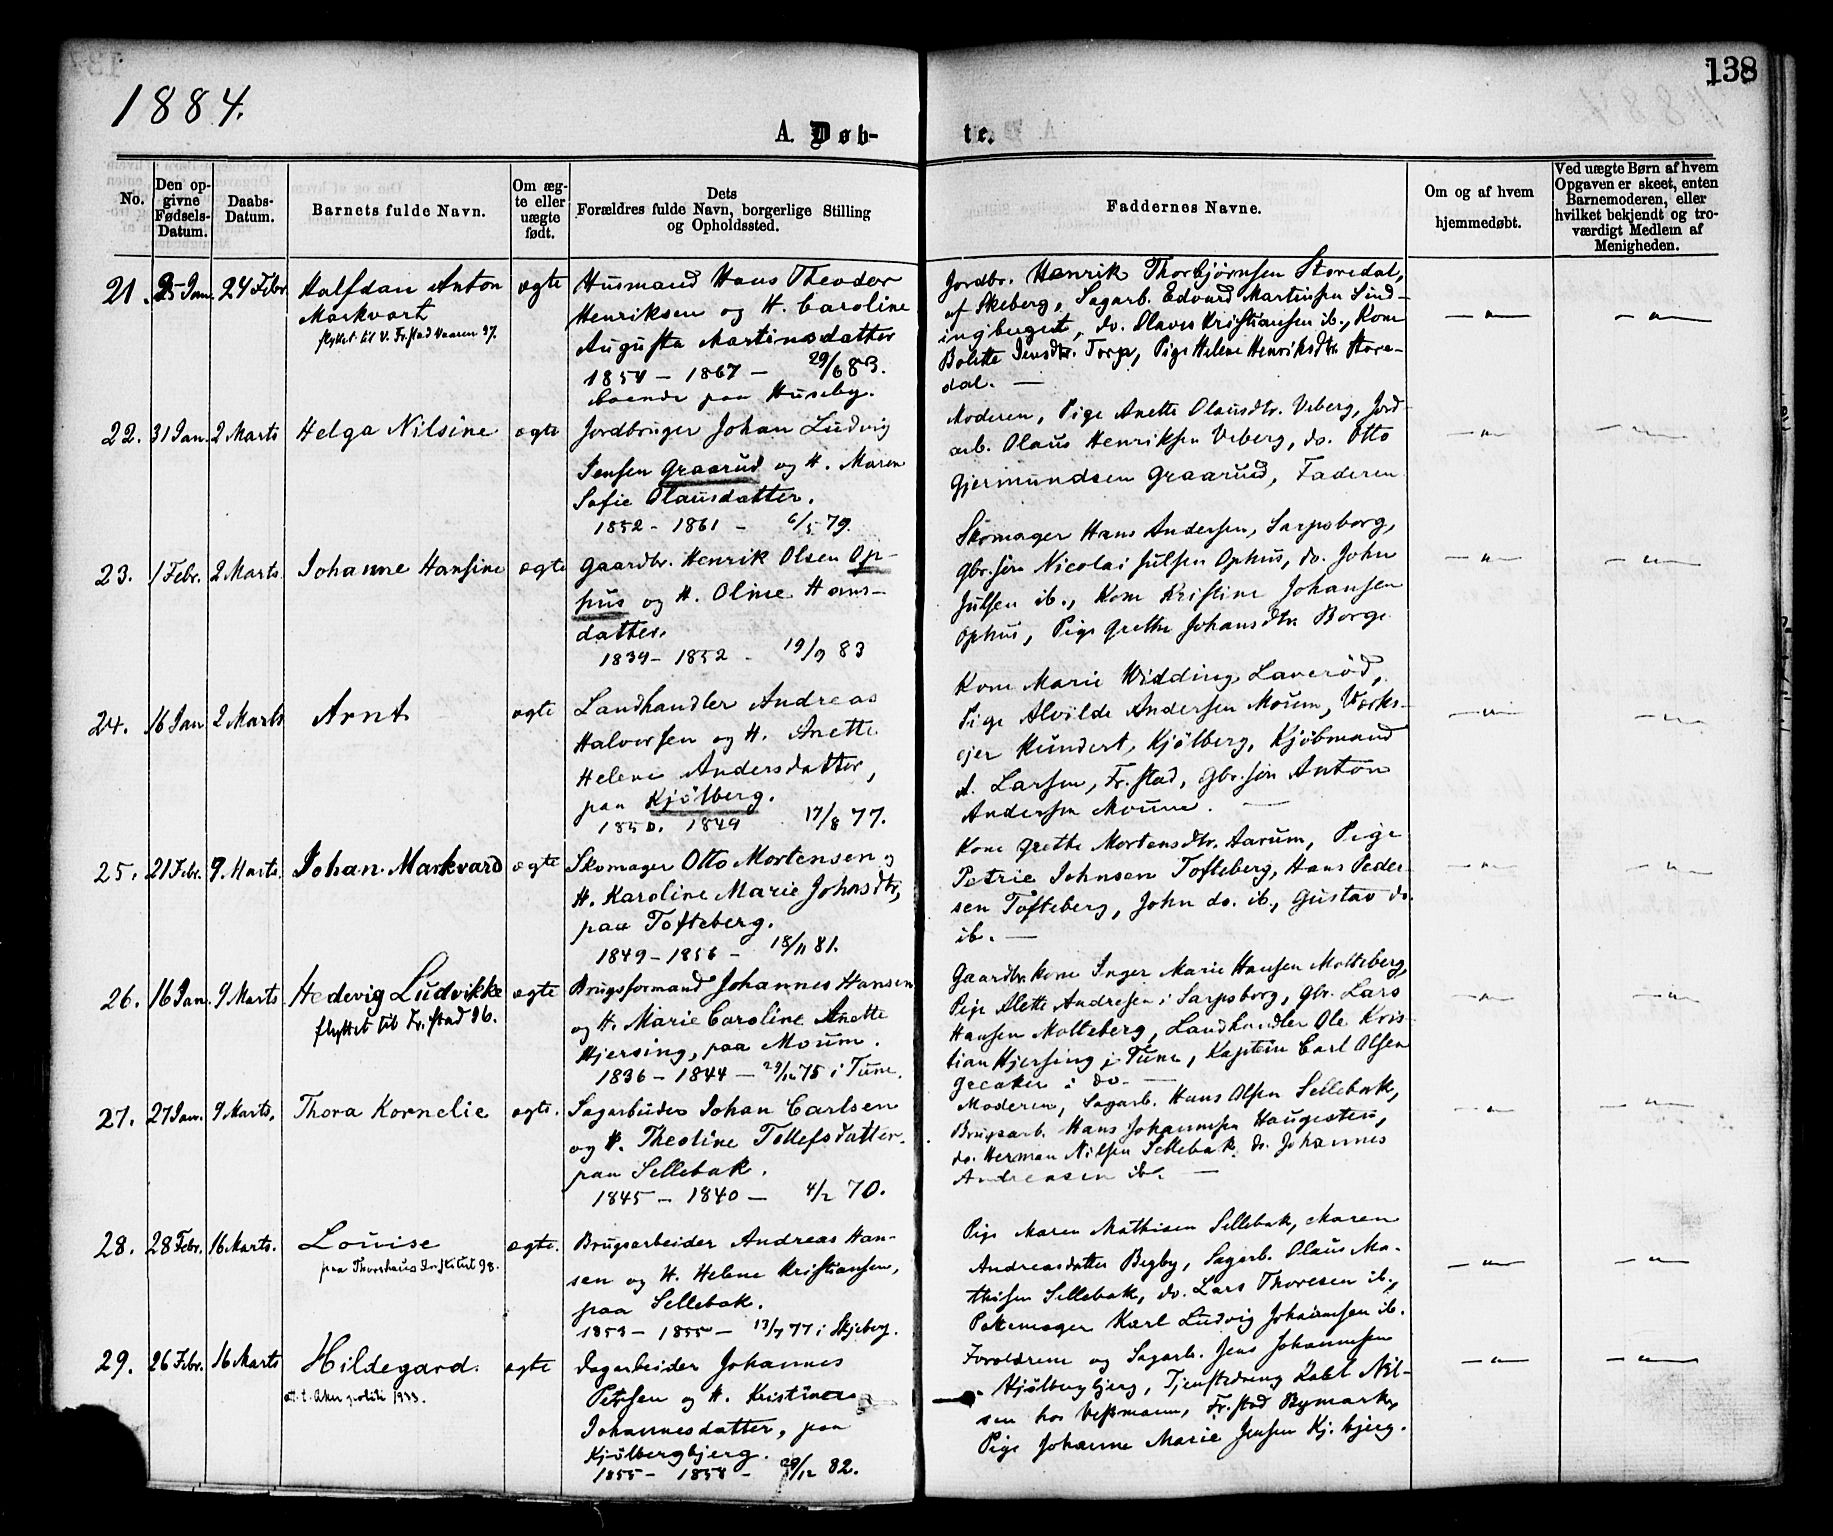 138
1884.
A. Døb-
te.
No.
Den op-
givne
Fødsels-
Datum.
Daabs-
Datum.
Barnets fulde Navn.
Om æg-
te eller
uægte
født.
Dets
Forældres fulde Navn, borgerlige Stilling
og Opholdssted.
Faddernes Navne.
Om og af hvem
hjemmedøbt.
Ved uægte Børn af hvem
Opgaven er skeet, enten
Barnemoderen, eller
hvilket bekjendt og tro-
værdigt Medlem af
Menigheden.
21. 25 Jan. 24 Febr. Halfdan Anton ægte Husmand Hans Theodor
Markvart
flyttet til V. Fr.stad Vaaren 97.
Henriksen og H. Caroline
Augusta Martinsdatter
1854 - 1867 - 29/6 83.
boende paa Huseby.
Jordbr. Henrik Thorbjørnsen Storedal,
af Skeberg, Sagarb. Edvard Martinsen Sind-
ingbuget, do. Olaves Kristiansen ib., Kone
Bolette Jensdtr. Torp, Pige Helene Henriksdtr. Store-
dal. —
— „ — — „ —
22. 31 Jan. 2 Marts Helga Nilsine ægte Jordbruger Johan Ludvig
Jensen Graarud og H. Maren
Sofie Olausdatter.
1852 - 1861 - 6/5 79.
Moderen, Pige Anette Olausdtr. Veberg, Jord-
arb. Olaus Henriksen Veberg, do. Otto
Gjermundsen Graarud, Faderen
— „ — — „ —
23. 1 Febr. 2 Marts. Johanne Hansine ægte Gaardbr. Henrik Olsen Op-
hus og H. Oline Hans-
datter.
1839 - 1852 - 19/9 83
Skomager Hans Andersen, Sarpsborg,
Gbr.søn Nicolai Julsen Ophus, do. John
Julsen ib., Kone Kristine Johansen
Ophus, Pige Grethe Johansdtr. Borge
— „ — — „ —
24. 16 Jan 2 Marts Arnt ægte Landhandler Andreas
Halvorsen og H. Anette
Helene Andersdatter,
paa Kjölberg.
1850. 1849 17/8 77.
Kone Marie Widding, Laverød,
Pige Alvilde Andersen Moum, Værks-
ejer Kundert, Kjölberg, Kjöbmand
A. Larsen, Fr.stad, Gbr.søn Anton
Andersen Moum. —
— „ — — „ —
25. 21 Febr. 9 Marts. Johan Markvard ægte Skomager Otto Mortensen og
H. Karoline Marie Johnsdtr,
paa Tofteberg.
1849 - 1856 - 18/11 81.
Kone Grethe Mortensdtr. Aarum, Pige
Petrie Johnsen Tofteberg, Hans Peder-
sen Tofteberg, John do. ib., Gustav do.
ib. —
— „ — — „ —
26. 16 Jan. 9 Marts Hedevig Ludvikke ægte Brugsformand Johannes Hansen
flyttet til Fr.stad 96.
og H. Marie Caroline Anette
Hjersing, paa Moum.
1836 - 1844 - 29/12 75 i Tune.
Gaardbr.kone Inger Marie Hansen Molteberg,
Pige Alette Andresen i Sarpsborg, Gbr. Lars
Hansen Molteberg, Landhandler Ole Kris-
tian Hjersing i Tune, Kaptein Carl Olsen
Greaker i do. —
— „ — — „ —
27. 27 Jan. 9 Marts. Thora Kornelie ægte. Sagarbeider Johan Carlsen
og H. Theoline Tollefsdatter.
paa Sellebak.
1845 - 1840 - 4/2 70.
Moderen, Sagarb. Hans Olsen Sellebak,
Brugsarb. Hans Johannesen Haugesten,
do. Herman Nilsen Sellebak, do. Johannes
Andreasen ib. —
— „ — — „ —
28. 28 Febr. 16 Marts. Lovise ægte. Brugsarbeider Andreas Han-
paa Thorshaus Institut 98.
sen og H. Helene Kristiansen,
paa Sellebak.
1853 - 1855 - 13/7 77 i Skjeberg.
Pige Maren Mathisen Sellebak, Maren
Andreasdatter Begby, Sagarb. Olaus Ma-
thisen Sellebak, do. Lars Thoresen ib.,
Karl Ludvig Johannsen ib.
— „ — — „ —
29. 26 Febr. 16 Marts Hildegard. ægte Dagarbeider Johannes
att. t. Aker politi 1933.
Petersen og H. Kristine
Johannesdatter, paa
Kjölbergbjerg.
1855 - 1858 - 29/12 82.
Foreldrene og Sagarb. Jens Johannsen
Hjölbergbjerg, Tjenstedreng Karl Nil-
sen hos Vessmann, Fr.stad Bymark,
Pige Johanne Marie Jensen Kj. bjerg.
— „ — — „ —